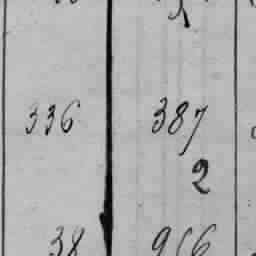 336 387
2
38 966